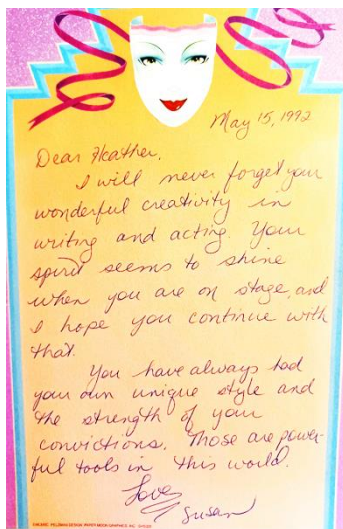 May 15, 1992
Dear Heather,
I will never forget your
wonderful creativity in
writing and acting. Your
spirit seems to shine
when you are on stage, and
I hope you continue with
that.
You have always had
your own unique style and
the strength of your
convictions. Those are power-
ful tools in this world.
Love,
Susan